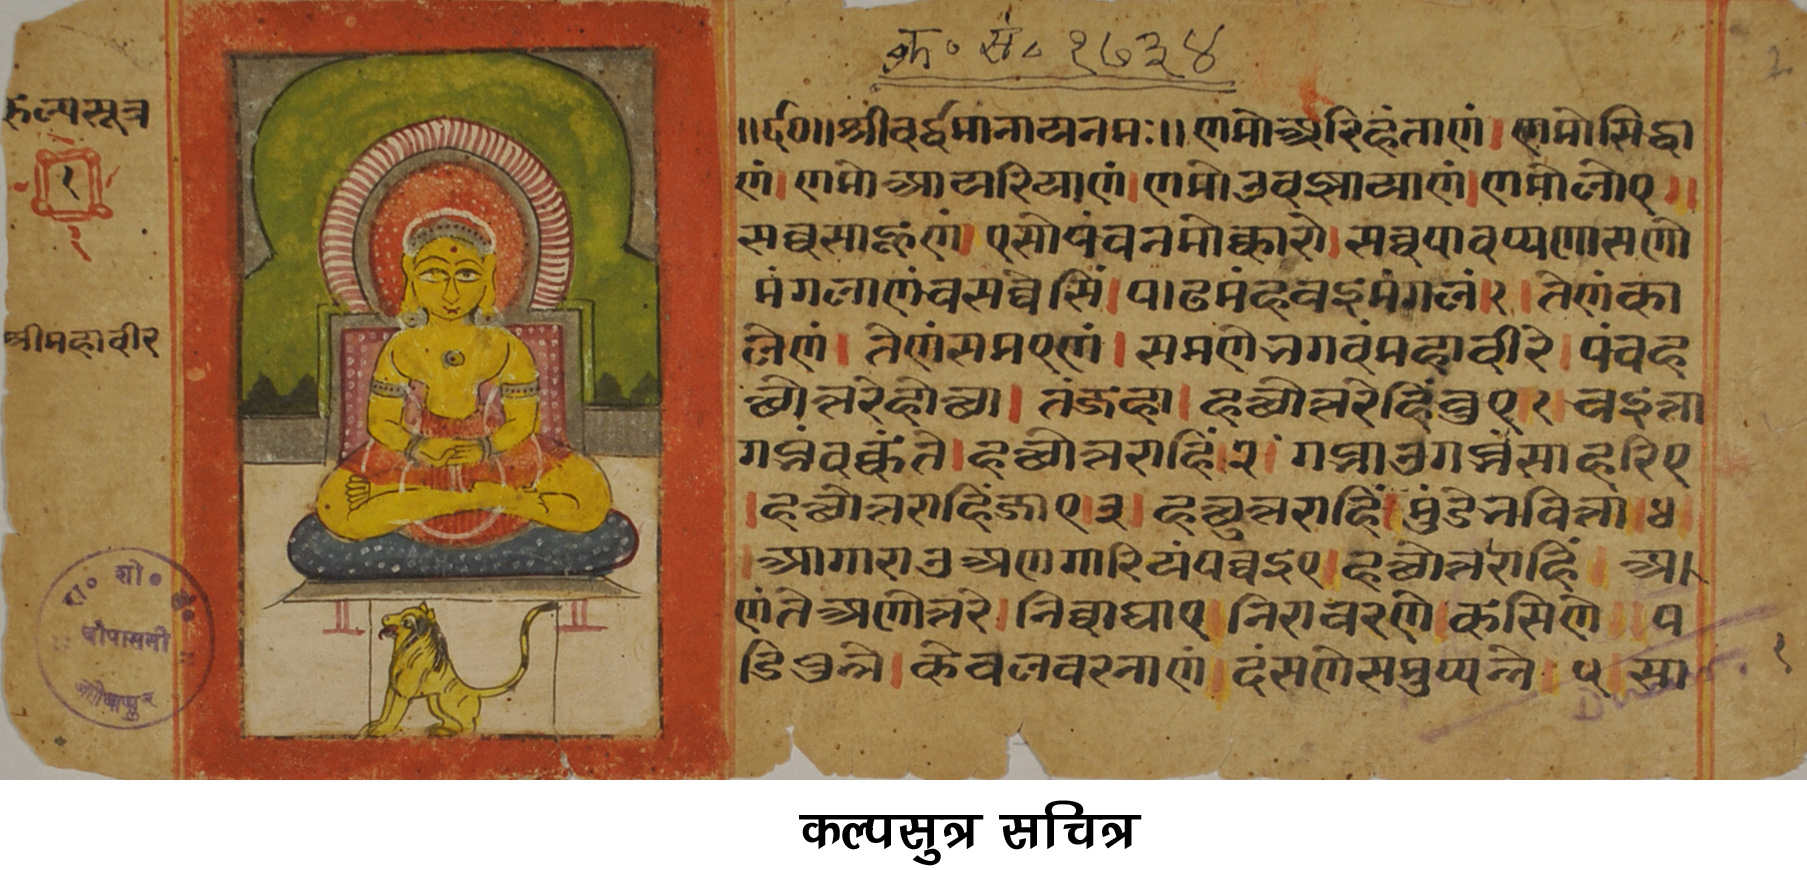 क्र॰ सं॰ १७३४
2
कल्पसूत्र
१
श्रीमहावीर
॥र्द०॥श्रीवर्द्धमानायनमः॥ णमोअरिहंताणं। णमोसिद्धा
णं। णमोआयरियाणं। णमोउवज्झायाणं। णमोलोए
सव्वसाहूणं। एसोपंचनमोक्कारो। सव्वपावप्पणासणो
मंगलाणंचसव्वेसिं। पढमंहवइमंगलं।१। तेणंका
लेणं। तेणंसमएणं। समणेभगवंमहावीरे। पंचह
त्थोत्तरेहोत्था। तंजहा। हत्थोत्तरेहिंचुए।१। चइत्ता
गब्भंवक्कंते। हत्थोत्तराहिं।२। गब्भाउगब्भंसाहरिए
।हत्थोत्तराहिंजाए।३। हत्थुत्तराहिं मुंडेभवित्ता।४
।आगाराउअणगारियंपव्वइए। हत्थोत्तराहिं। अ
णंतेअणोत्तरे। निव्वाघाए। निरावरणे। कसिणे। प
डिपुन्ने। केवलवरनाणं। दंसणेसमुप्पन्ने। ५। सा
१
रा॰ शो॰ सं॰
चौपासनी
जोधपुर
कल्पसुत्र सचित्र